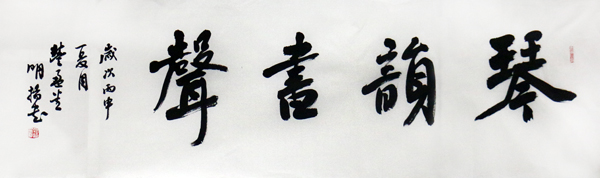 琴韻書聲
歲次丙申
夏月
明揚書